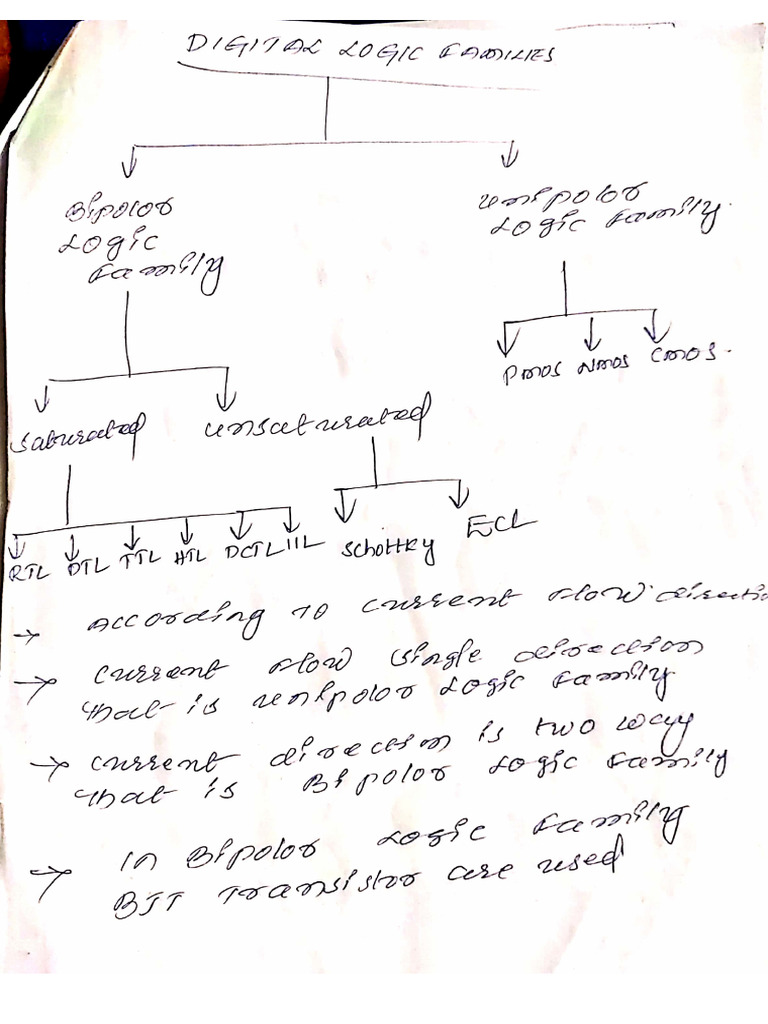 DIGITAL LOGIC FAMILIES
Bipolor
Logic
Family
Unipolor
Logic Family.
PMOS NMOS CMOS.
Saturated unsaturated
RTL DTL TTL HTL DCTL IIL Schottky ECL
→ According to current flow directio
→ current flow single direction
that is unipolor Logic Family
→ current direction is two way
that is Bipolor Logic Family
→ In Bipolor Logic Family
BJT Transistor are used